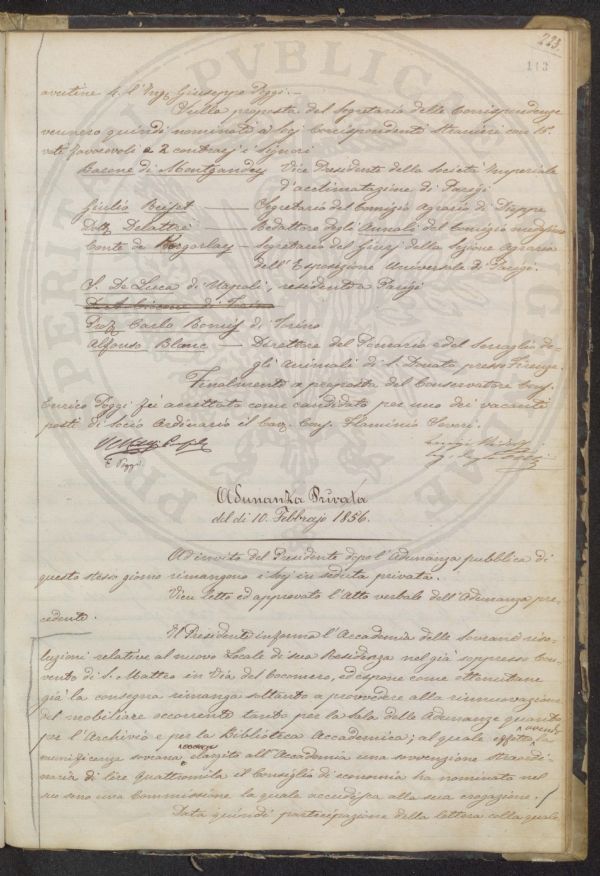 223.
113
avertine 4. l'Ing. Giuseppe Poggi.
Sulla proposta del Segretario delle Corrispondenze
vennero quindi nominati a Socj Corrispondenti Stranieri con 15.
voti favorevoli e 2 contrarj i Signori
Barone di Montgaudry Vice Presidente della Società Imperiale
d'acclimatazione di Parigi
Giulio Segretario del Comizio Agrario di Dieppe
Dott. Delattre Redattore degli Annali del Comizio medesimo
Conte de Kergorlay Segretario del Giurj della Sezione Agraria
dell'Esposizione Universale di Parigi.
S. De Luca di Napoli, residente a Parigi
di Torino
Prof. Carlo di Torino
Alfonso Blanc Direttore del e del Serraglio de-
gli Animali di S. Donato presso Firenze.
Finalmente a proposta del Conservatore Conj.
Enrico Poggi fu accettato come candidato per uno dei vacanti
posti di Socio Ordinario il Cav. Flaminio Severi.
E. Poggi
Adunanza Privata
del dì 10. Febbrajo 1856.
Ad invito del Presidente dopo l'Adunanza pubblica di
questo stesso giorno rimangono i Socj in seduta privata.
Vien letto ed approvato l'Atto verbale dell'Adunanza pre-
cedente.
Il Presidente informa l'Accademia delle Sovrane riso-
luzioni relative al nuovo Locale di sua Residenza nel già soppresso Con-
vento di S. Matteo in Via del Cocomero, ed espone come ottenutane
già la consegna rimanga soltanto a provvedere alla rinnuovazione
del mobiliare occorrente tanto per la Sala delle Adunanze quanto
per l'Archivio e per la Biblioteca Accademica; al quale effetto avendo la
munificenza sovrana elargito all'Accademia una sovvenzione straordi-
naria di lire Quattromila il Consiglio di economia ha nominato nel
suo seno una Commissione la quale accudisca alla sua erogazione.
Data quindi partecipazione della lettera colla quale